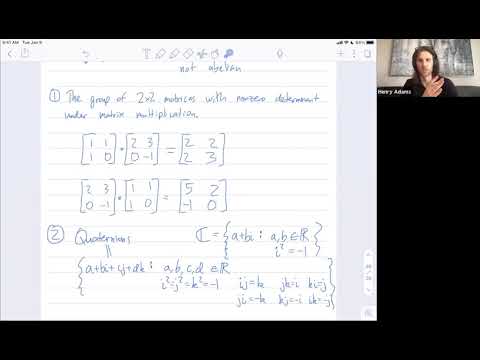 9:41 AM Tue Jan 9
not abelian
① The group of 2x2 matrices with nonzero determinant
under matrix multiplication.
[1 1; 1 0] • [2 3; 0 -1] = [2 2; 2 3]
[2 3; 0 -1] • [1 1; 1 0] = [5 2; -1 0]
② Quaternions
ℂ = {a+bi : a,b ∈ ℝ
i² = -1}
{a+bi+cj+dk : a,b,c,d ∈ ℝ
i²=j²=k²=-1 ij=k jk=i ki=j
ji=-k kj=-i ik=-j}
Henry Adams